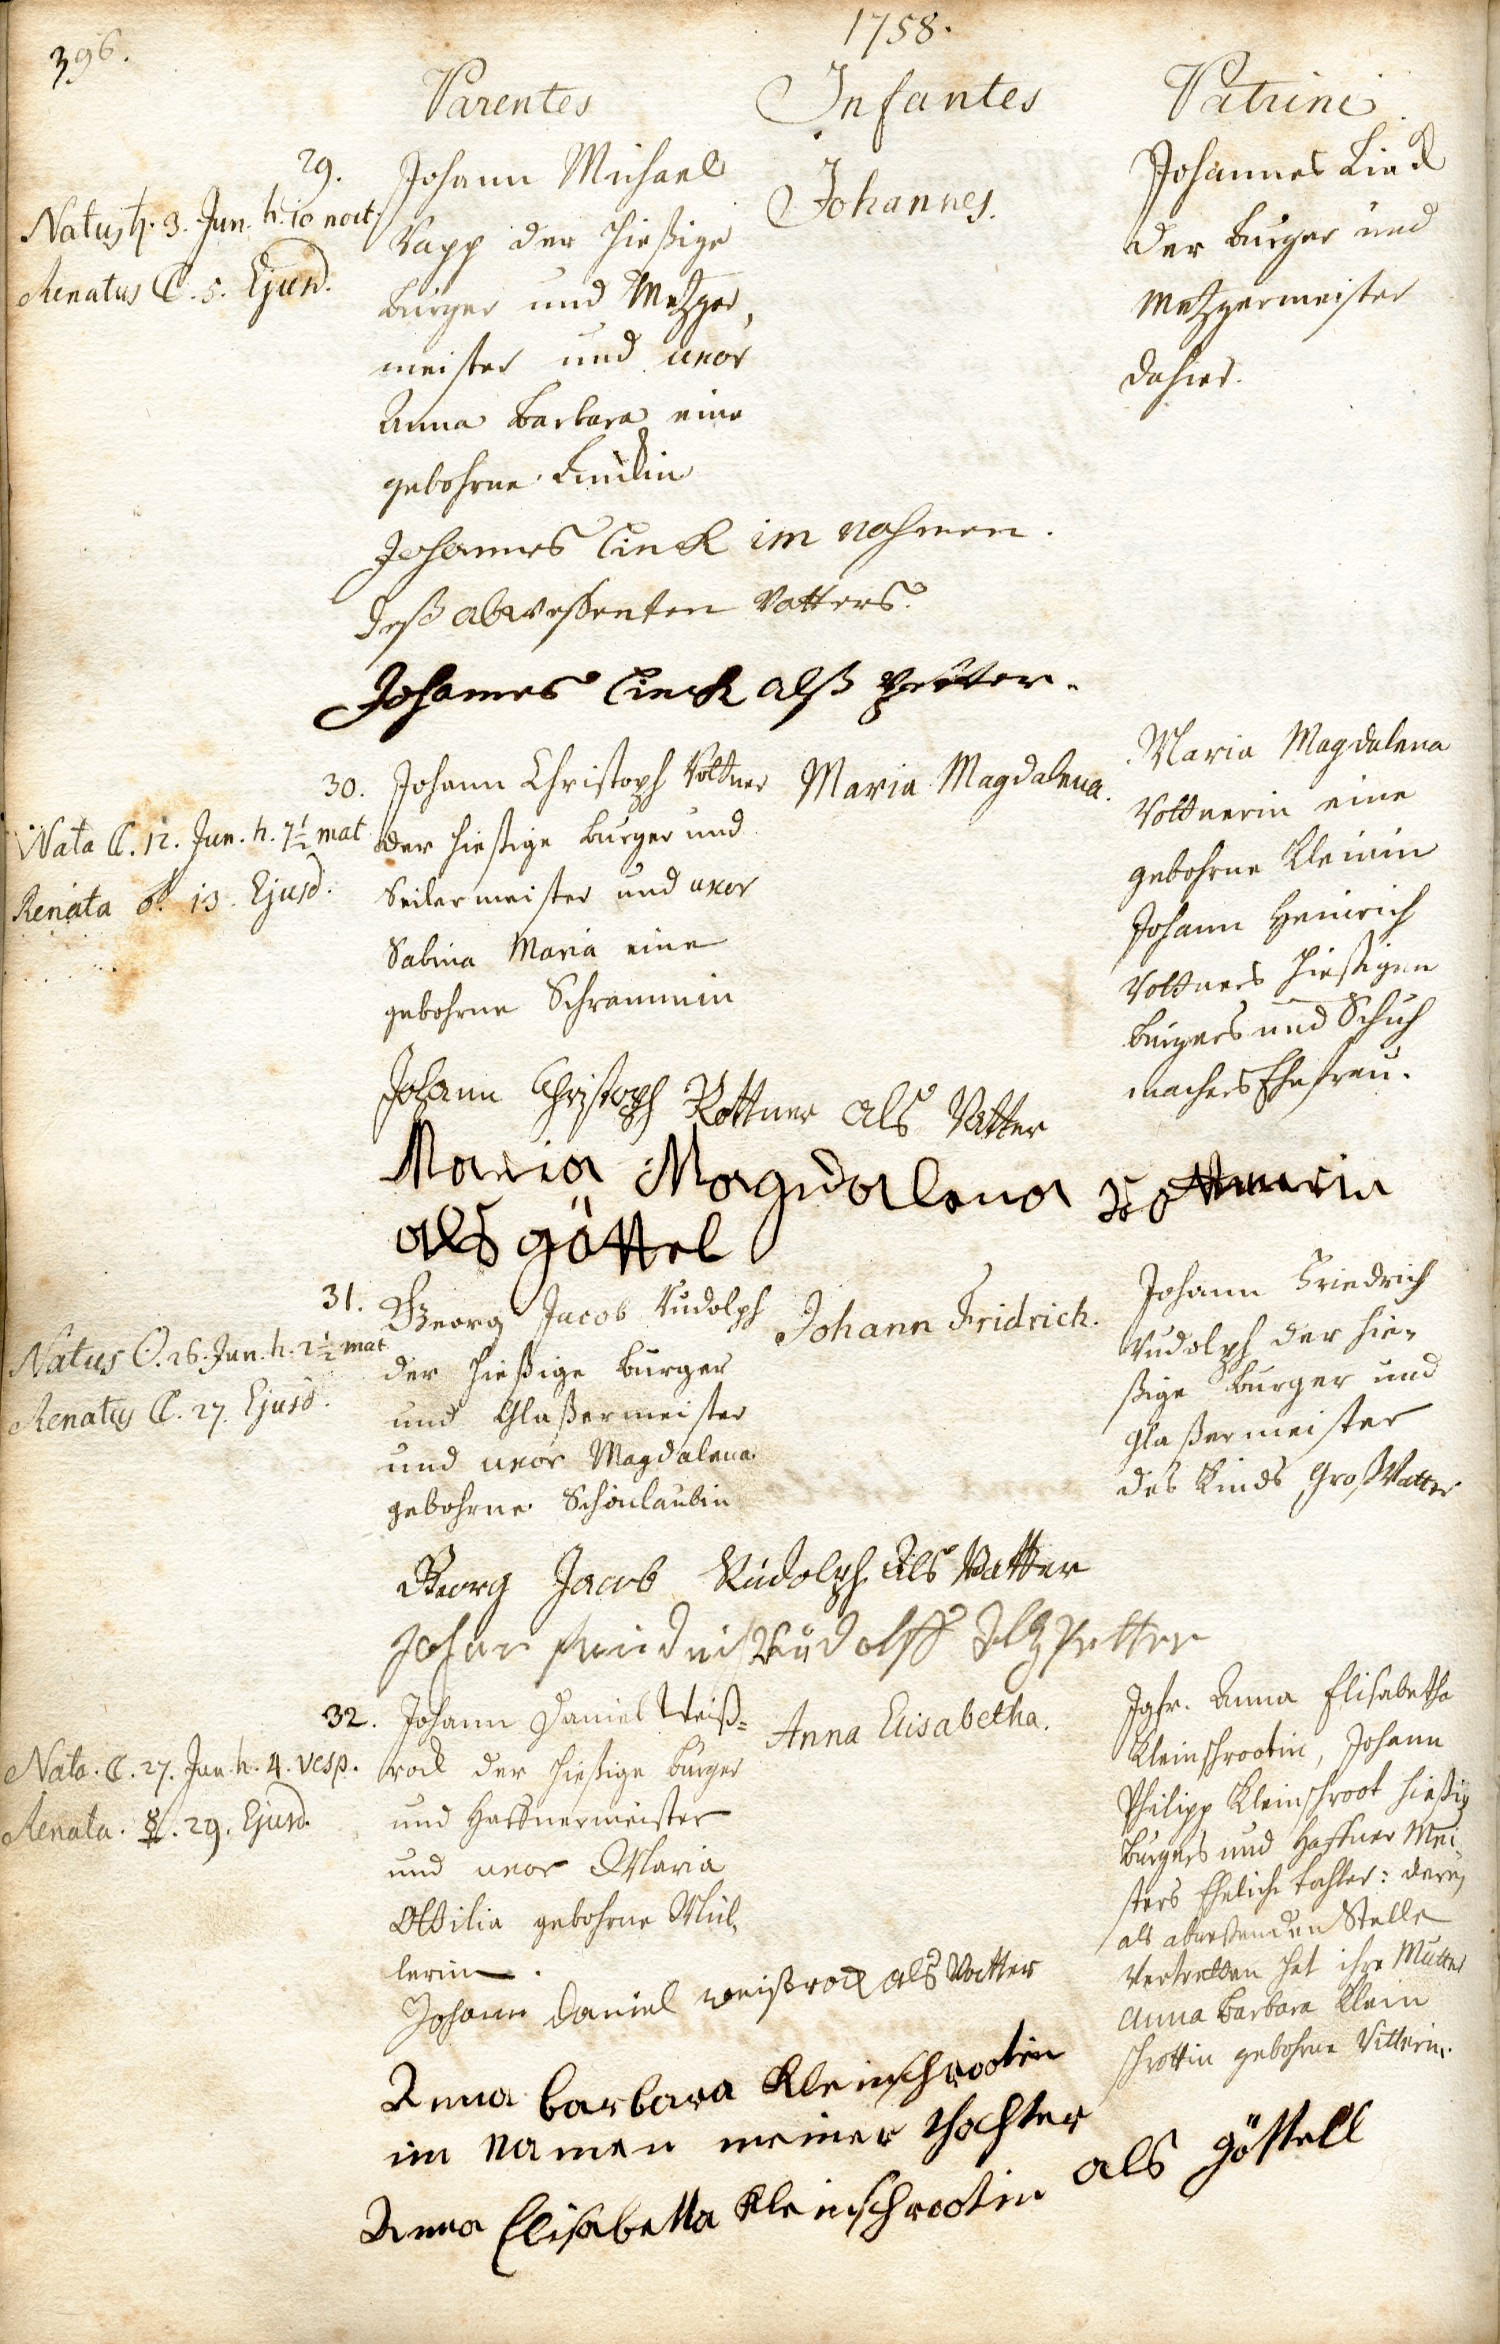 396.
1758.
Parentes Infantes Patrini
29.
Natus ♄. 3. Jun. h. 10 noct.
Renatus ☾. 5. Ejusd.
Johann Michael
Rapp der hießige
burger und Metzger,
meister und uxor
Anna Barbara eine
gebohrne
Johannes.
Johannes Linck
der burger und
Metzgermeister
dahier.
Johannes Linck im nahmen.
deß abweßenten Vatters.
Johannes Linck alß petter.
30.
Nata ☾. 12. Jun. h. 7½ mat
Renata ♂. 13. Ejusd.
Johann Christoph Rottner
der hießige burger und
Seilermeister und uxor
Sabina Maria eine
gebohrne Schrammin
Maria Magdalena.
Maria Magdalena
Rottnerin eine
gebohrne Kleinin
Johann Heinrich
Rottners hießigen
burgers und Schuh
machers Ehefrau.
Johann Christoph Rottner als Vatter
Maria Magdalena Rottnerin
als göttel
31.
Natus ☉. 26. Jun. h. 2½ mat
Renatus ☾. 27. Ejusd.
Georg Jacob Rudolph
der hießige burger
und Glaßermeister
und uxor Magdalena
gebohrne Schönlaubin
Johann Fridrich.
Johann Friedrich
Rudolph der hie-
ßige burger und
Glaßermeister
des Kinds GroßVatter
Georg Jacob Rudolph Als Vatter
Johan Rudolff Alß Petter
32.
Nata. ☾. 27. Jun. h. 4. vesp.
Renata. ☿. 29. Ejusd.
Johann Daniel Weiß=
rock der hießige burger
und Haffnermeister
und uxor Maria
Ottilia gebohrne Mül,
lerin.
Anna Elisabetha.
Jgfr. Anna Elisabetha
Kleinschrootin, Johann
Philipp Kleinschroot hießig
burgers und Haffner Mei
sters Eheliche tochter: deren
als abweßenden Stelle
vertretten hat ihre Mutter
Anna Barbara Klein
schrottin gebohrne Ritterin.
Johann Daniel weisrock als Vatter
Anna barbara Kleinschrootin
im namen meiner thochter
Anna Elisabetta Kleinschrootin als göttell